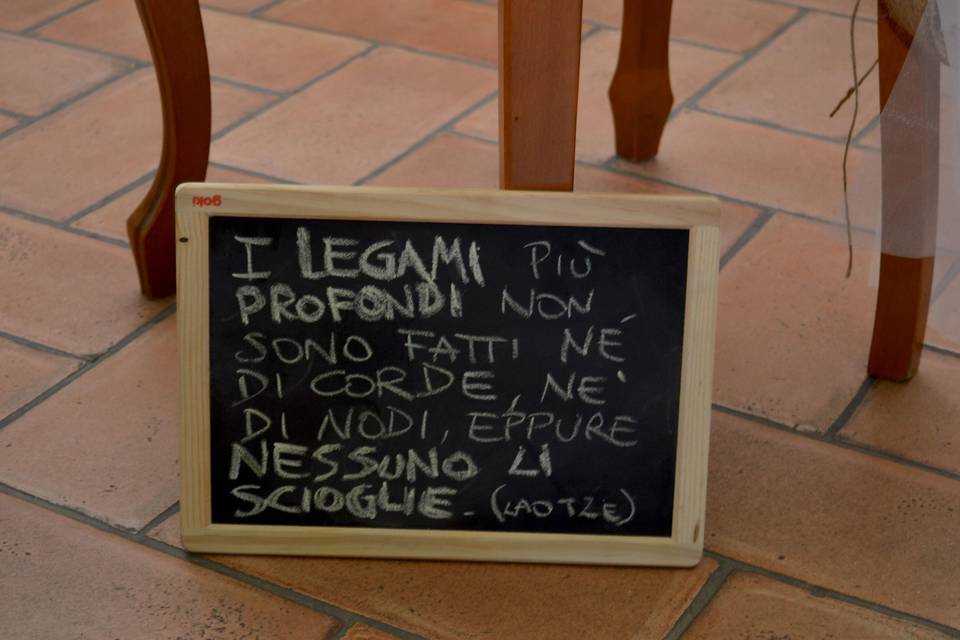 goki
I LEGAMI PIÙ
PROFONDI NON
SONO FATTI NÉ
DI CORDE, NE'
DI NODI, EPPURE
NESSUNO LI
SCIOGLIE. (LAOTZE)